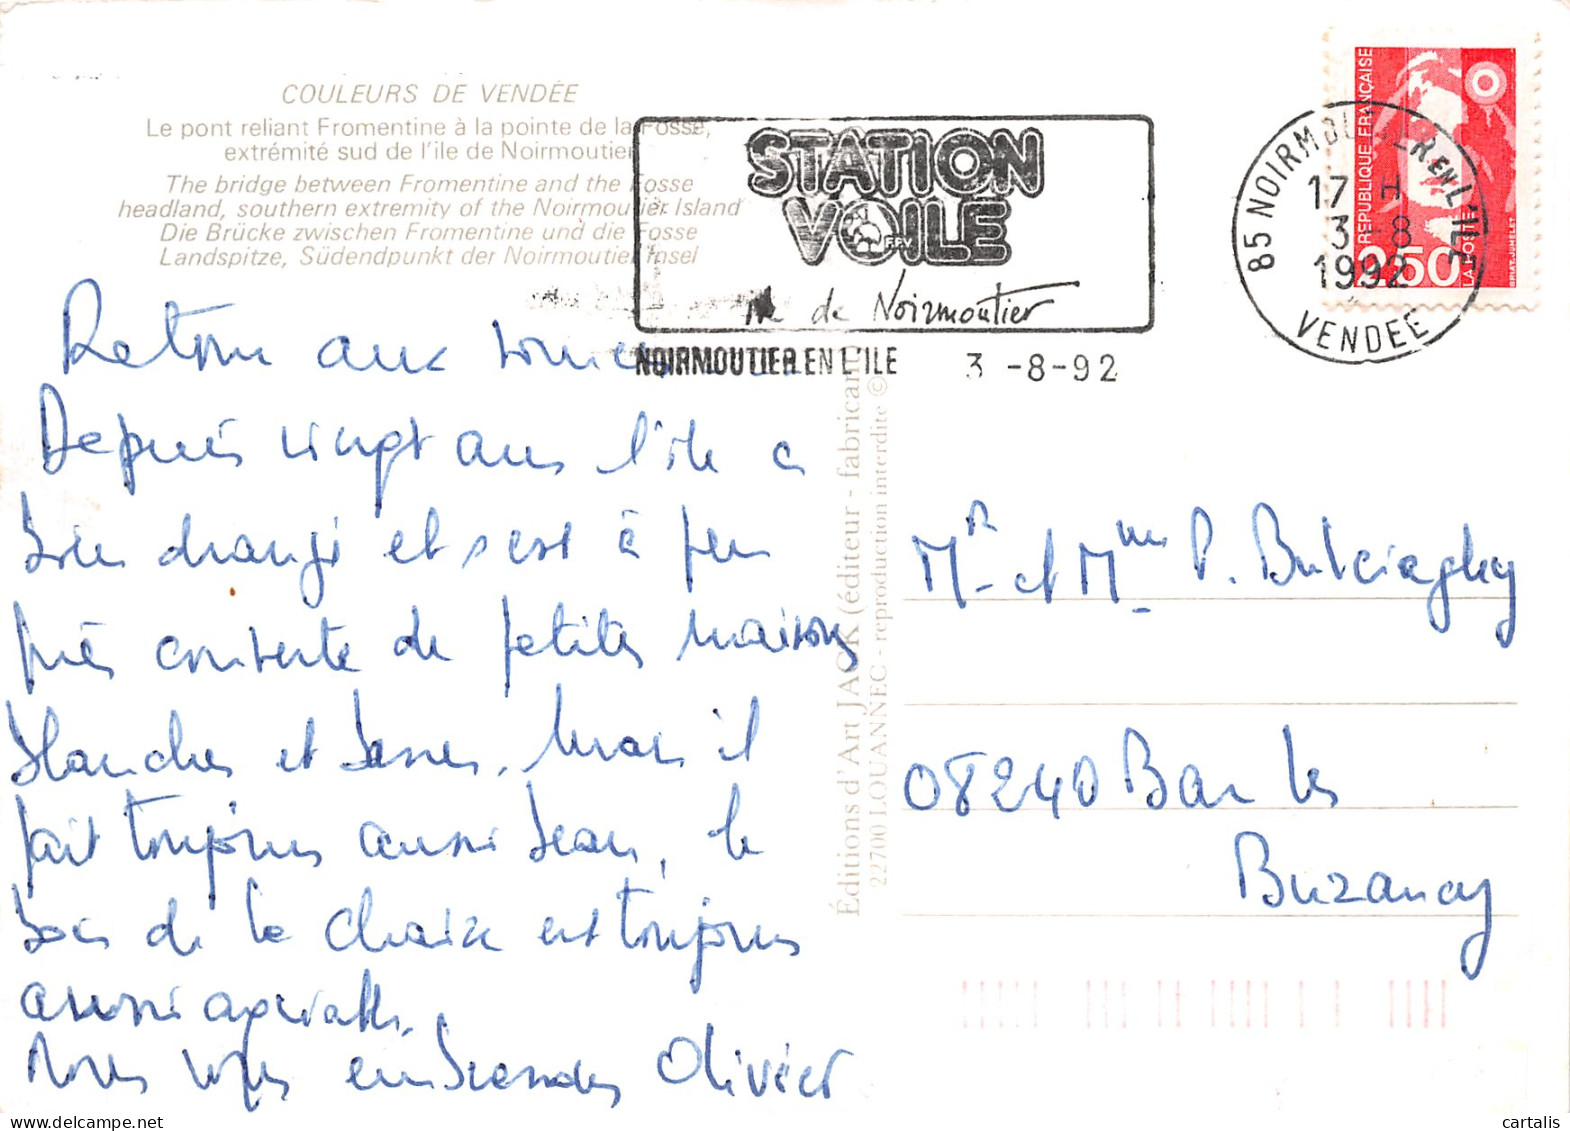 COULEURS DE VENDÉE
Le pont reliant Fromentine à la pointe de la Fosse,
extrémité sud de l'ile de Noirmoutier
The bridge between Fromentine and the Fosse
headland, southern extremity of the Noirmoutier Island
Die Brücke zwischen Fromentine und die Fosse
Landspitze, Südendpunkt der Noirmoutier Insel
STATION
VOILE
F.F.V.
Ile de Noirmoutier
NOIRMOUTIER EN L'ILE 3 -8-92
85 NOIRMOUTIER EN L'ILE
17 H
3-8
1992
VENDEE
REPUBLIQUE FRANÇAISE
2,50
LA POSTE
BRIAT-JUMELET
Retour aux sources
Depuis vingt ans l'ile a
bien changé et s'est à peu
près couverte de petites maisons
blanches et basses, mais il
fait toujours aussi beau, le
bois de la chaize est toujours
aussi agréable.
Nous vous embrassons Olivier
Éditions d'Art JACK (éditeur - fabricant)
22700 LOUANNEC - reproduction interdite ©
Mr et Mme P.
08240 Bar les
Buzancy
cartalis